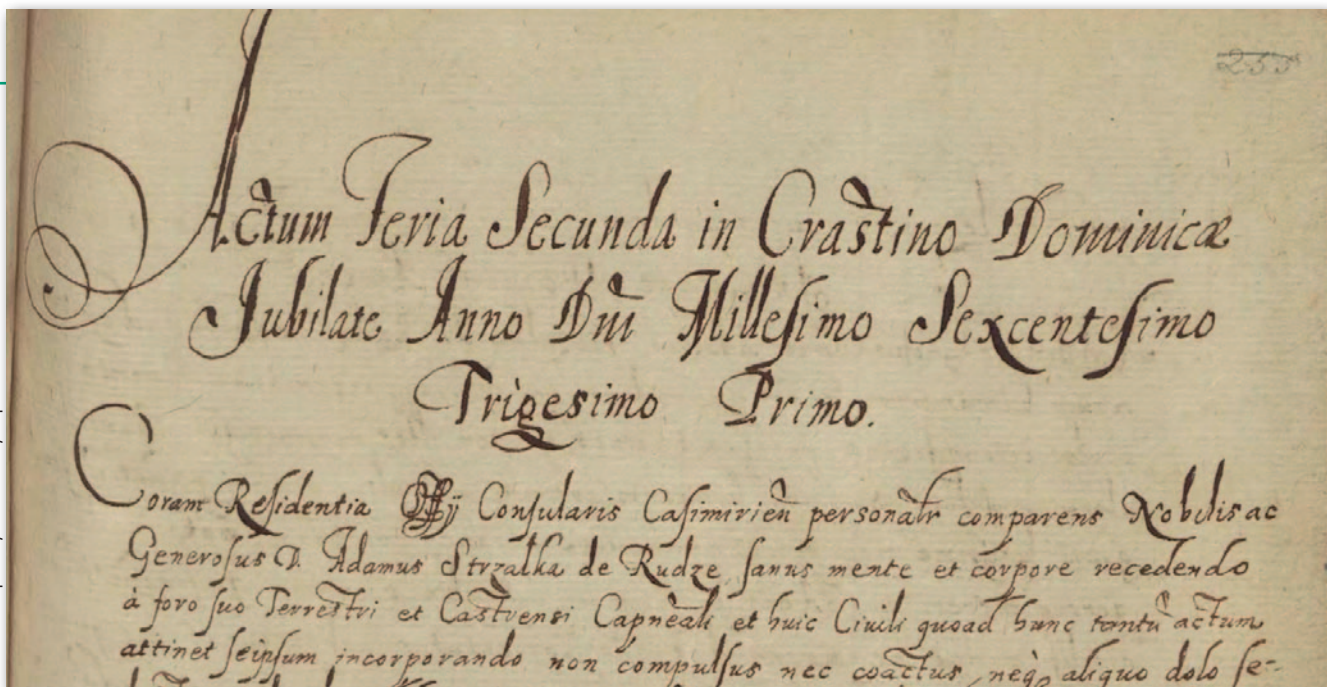 233
Actum Feria Secunda in Crastino Dominicæ
Jubilate Anno Dni Millesimo Sexcentesimo
Trigesimo Primo.
Coram Residentia Offij Consularis Casimirień personalr comparens Nobilis ac
Generosus D. Adamus Strzalka de Rudze sanus mente et corpore recedendo
à foro suo Terrestri et Castrensi Capnēali et huic Ciuili quoad hunc tantū actum
attinet seipsum incorporando non compulsus nec coactus, neq aliquo dolo se-